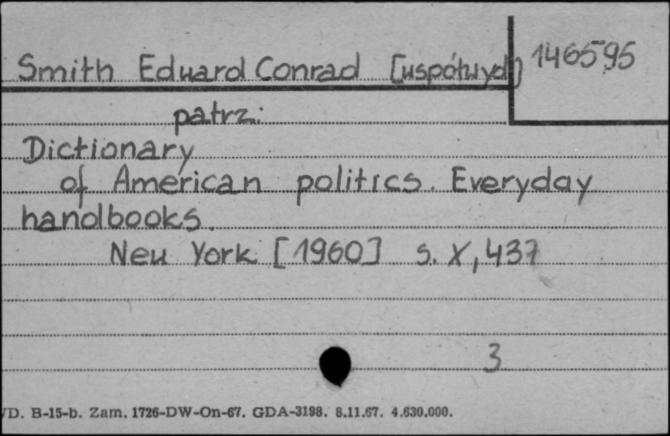 Smith Eduard Conrad [współwyd] 146595
patrz:
Dictionary
of American politics. Everyday
handbooks.
New York [1960] s. X, 437
3
D. B-15-b. Zam. 1726-DW-On-67. GDA-3198. 8.11.67. 4.630.000.